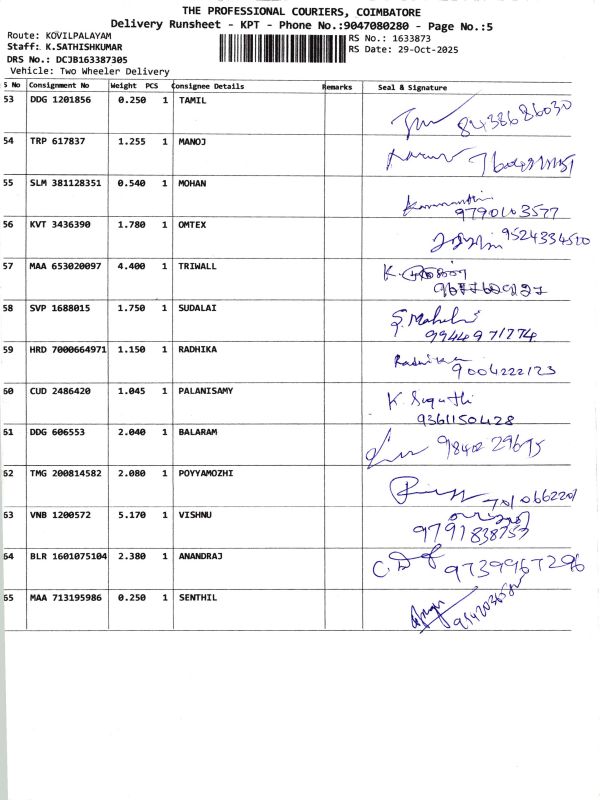 THE PROFESSIONAL COURIERS, COIMBATORE
Delivery Runsheet - KPT - Phone No.:9047080280 - Page No.:5
Route: KOVILPALAYAM
RS No.: 1633873
Staff: K.SATHISHKUMAR
RS Date: 29-Oct-2025
DRS No.: DCJB163387305
Vehicle: Two Wheeler Delivery
S No Consignment No Weight PCS Consignee Details Remarks Seal & Signature
53 DDG 1201856 0.250 1 TAMIL
8438686030
54 TRP 617837 1.255 1 MANOJ
55 SLM 381128351 0.540 1 MOHAN
9790103577
56 KVT 3436390 1.780 1 OMTEX
9524334520
57 MAA 653020097 4.400 1 TRIWALL
K.
58 SVP 1688015 1.750 1 SUDALAI
S. Mahalni
9944971774
59 HRD 7000664971 1.150 1 RADHIKA
Radhika
9004222123
60 CUD 2486420 1.045 1 PALANISAMY
K. Sugathi
9361150428
61 DDG 606553 2.040 1 BALARAM
9840229675
62 TMG 200814582 2.080 1 POYYAMOZHI
7010662201
63 VNB 1200572 5.170 1 VISHNU
9791838753
64 BLR 1601075104 2.380 1 ANANDRAJ
9739967296
65 MAA 713195986 0.250 1 SENTHIL